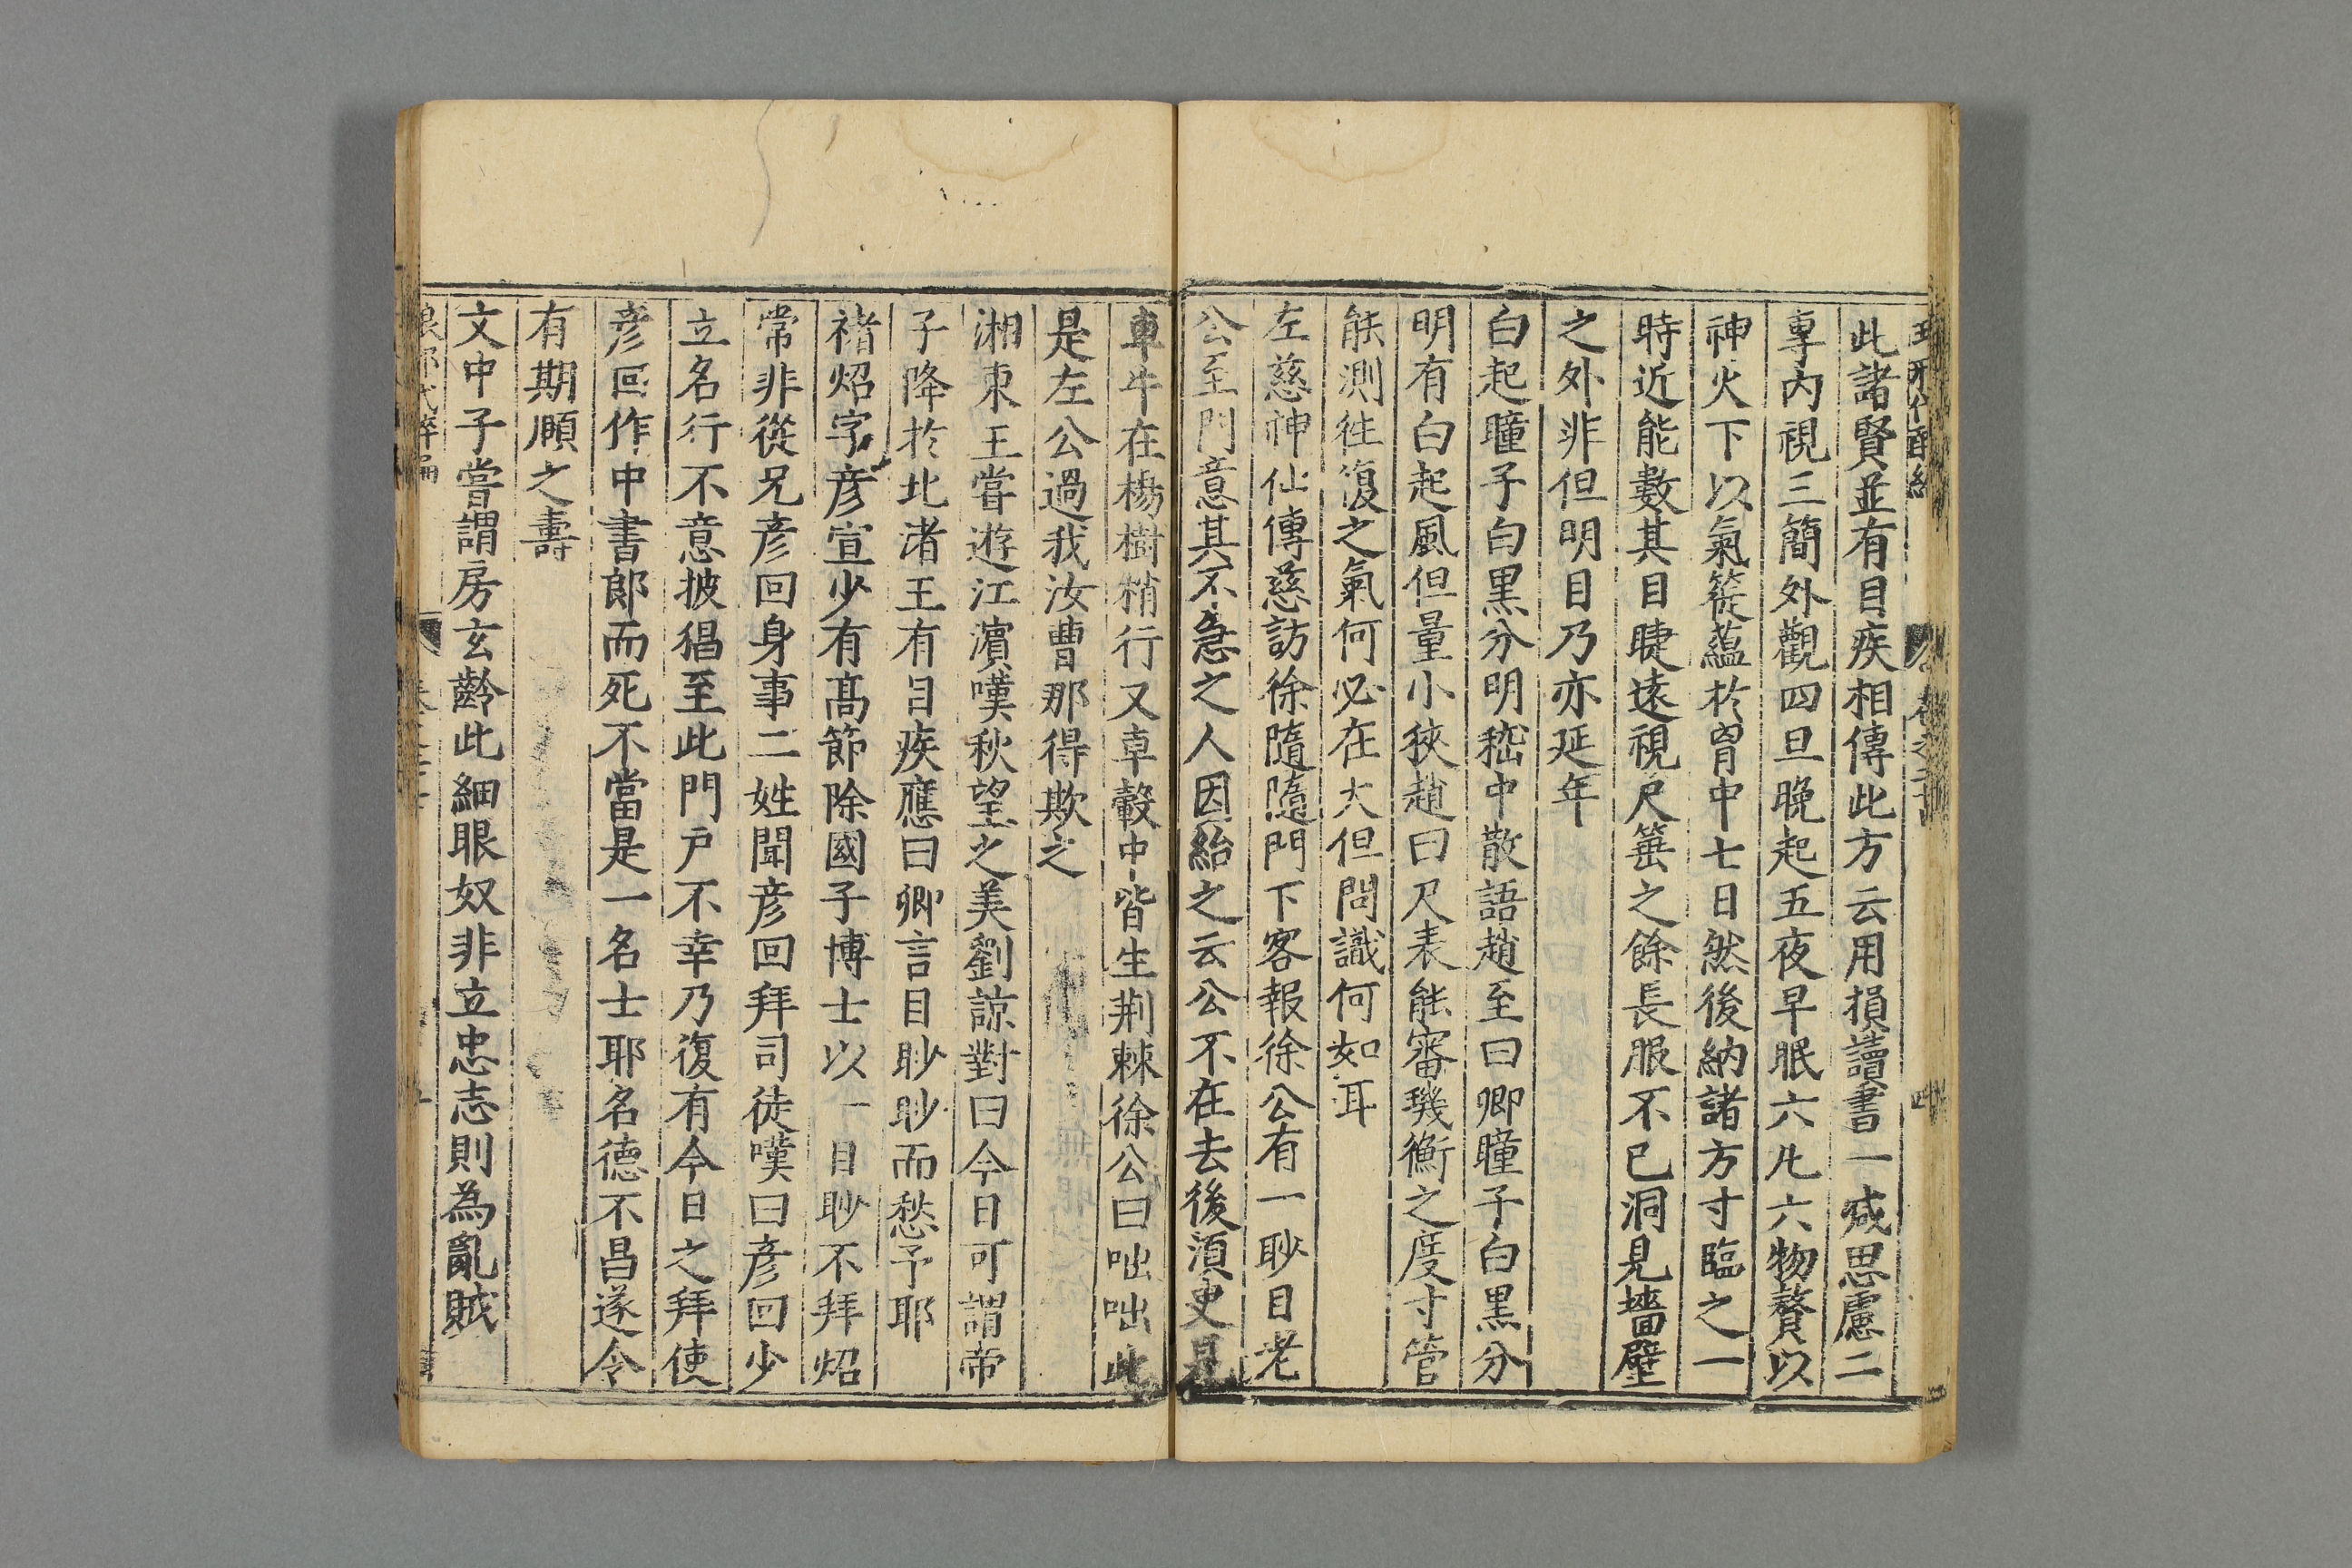 此諸賢並有目疾相傳此方云用損讀書一减思慮二
專內視三簡外觀四旦晚起五夜早眠六凡六物熬以
神火下以氣簁蘊於胷中七日然後納諸方寸臨之一
時近能數其目睫遠視尺箠之餘長服不已洞見墻壁
之外非但明目乃亦延年
白起瞳子白黑分明嵇中散語趙至曰卿瞳子白黑分
明有白起風但量小狹趙曰尺表能審璣衡之度寸管
能測徃復之氣何必在大但問識何如耳
左慈神仙傳慈訪徐隨隨門下客報徐公有一眇目老
公至門意其不急之人因紿之云公不在去後湏臾見
車牛在楊樹梢行又車轂中皆生荆棘徐公曰咄咄此
是左公過我汝曹那得欺之
湘東王嘗遊江濵嘆秋望之美劉諒對曰今日可謂帝
子降於北渚王有目疾應曰卿言目眇眇而愁予耶
褚炤字彦宣少有髙節除國子博士以一目眇不拜炤
常非從兄彦回身事二姓聞彦回拜司徒嘆曰彦回少
立名行不意披猖至此門户不幸乃復有今日之拜使
彦回作中書郎而死不當是一名士耶名德不昌遂令
有期頤之壽
文中子嘗謂房玄齡此細眼奴非立忠志則為亂賊